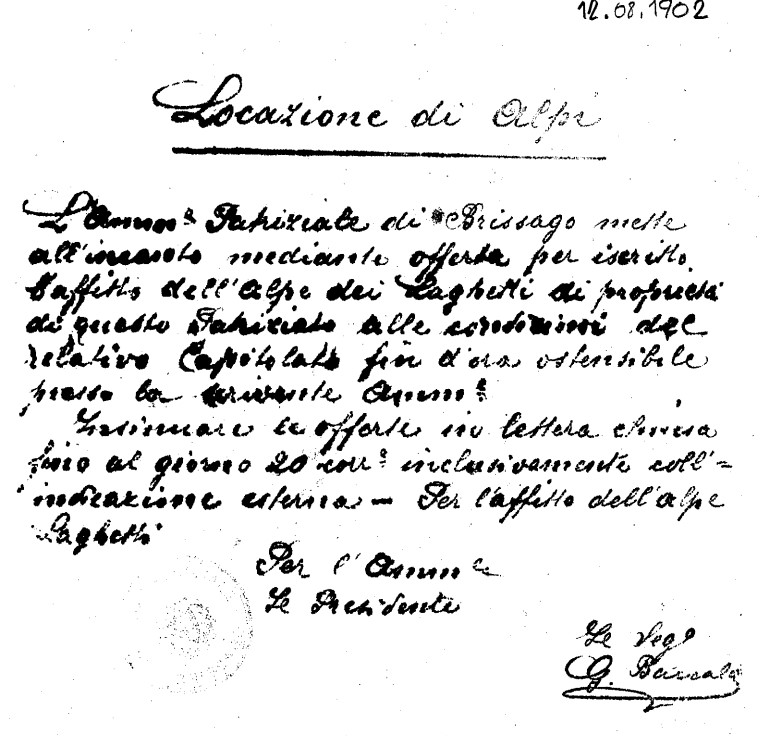 12.08.1902
Locazione di Alpi
L'Ammne Patriziale di Brissago mette
all'incanto mediante offerta per iscritto
l'affitto dell'Alpe dei Laghetti di proprietà
di questo Patriziato alle condizioni del
relativo Capitolato fin d'ora ostensibile
presso la scrivente Ammne
Insinuare le offerte in lettera chiusa
fino al giorno 20 corre inclusivamente coll'=
indicazione esterna - Per l'affitto dell'alpe
Laghetti
Per l'Ammne
Il Presidente
Il Sego
G.